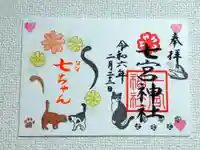 奉拝
七宮神社
令和六年
二月二十二日
七ちゃん